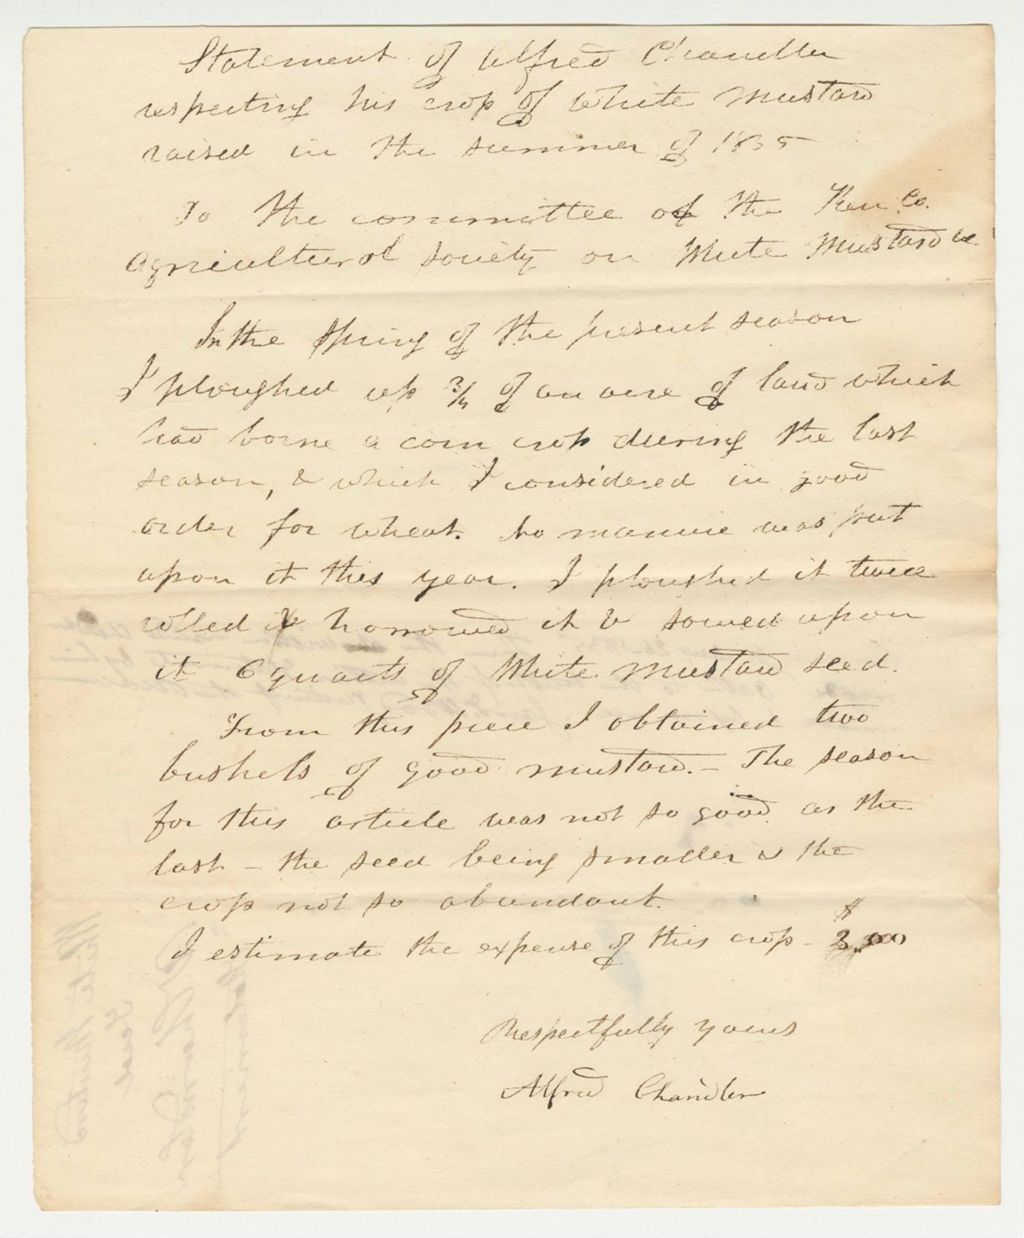 Statement of Alfred Chandler
respecting his crop of White Mustard
raised in the summer of 1835
To the committee of the Ken. Co.
Agricultural Society on White Mustard &c.
In the Spring of the present season
I ploughed up 3/4 of an acre of land which
had borne a corn crop during the last
season, & which I considered in good
order for wheat. No manure was put
upon it this year. I ploughed it twice
rolled & harrowed it & sowed upon
it 6 quarts of White Mustard seed.
From this piece I obtained two
bushels of good mustard. – The season
for this article was not so good as the
last – the seed being smaller & the
crop not so abundant.
I estimate the expense of this crop – $3.00
Respectfully yours
Alfred Chandler
White Mustard
Seed
A Chandler
Statement